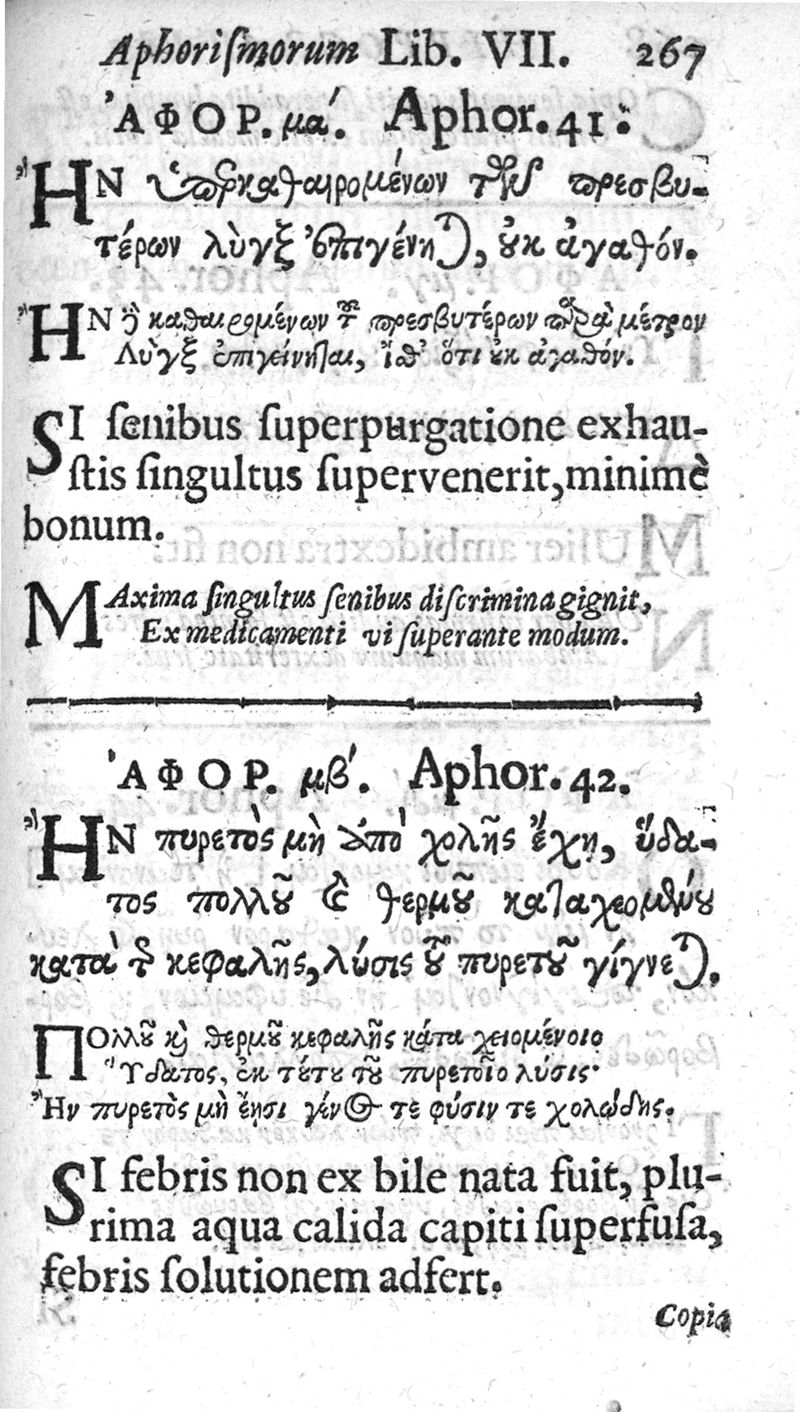 Aphoriſmorum Lib. VII. 267
ἈΦΟΡ. μα΄. Aphor. 41.
ἪΝ ὑπερκαθαιρομένων τῶν πρεσβυ-
τέρων λὺγξ ἐπιγένηται, ȣ̓κ ἀγαθόν.
ἪΝ δὲ καθαιρομένων τῶν πρεσβυτέρων παρὰ μέτρον
Λὺγξ ἐπιγείνηται, ἴσθ' ὅτι ȣ̓κ ἀγαθόν.
SI ſenibus ſuperpurgatione exhau-
ſtis ſingultus ſupervenerit, minimè
bonum.
MAxima ſingultus ſenibus diſcrimina gignit,
Ex medicamenti vi ſuperante modum.
ἈΦΟΡ. μβ΄. Aphor. 42.
ἪΝ πυρετὸς μὴ ἀπὸ χολῆς ἔχῃ, ὕδα-
τος πολλȣ͂ καὶ θερμȣ͂ καταχεομένȣ
κατὰ τῆς κεφαλῆς, λύσις τȣ͂ πυρετȣ͂ γίγνεται.
ΠΟλλȣ͂ καὶ θερμȣ͂ κεφαλῆς κάτα χειομένοιο
Ὕδατος, ἐκ τȣ́τȣ τȣ͂ πυρετοῖο λύσις·
Ἢν πυρετὸς μὴ ἔῃσι γένος τε φύσιν τε χολώδης.
SI febris non ex bile nata fuit, plu-
rima aqua calida capiti ſuperfuſa,
febris ſolutionem adfert.
Copia